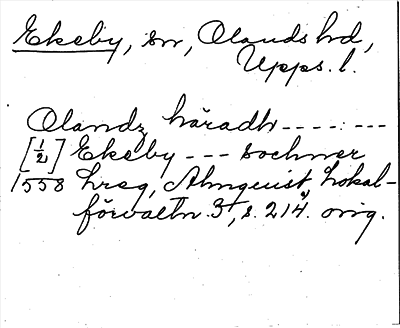 Ekeby, sn, Olands hd,
Upps. l.
Olandz häradh ---.---
[1/2] Ekeby --- sochner
1558 hreg, Almquist, Lokal-
förvaltn. 3, s. 214. orig.